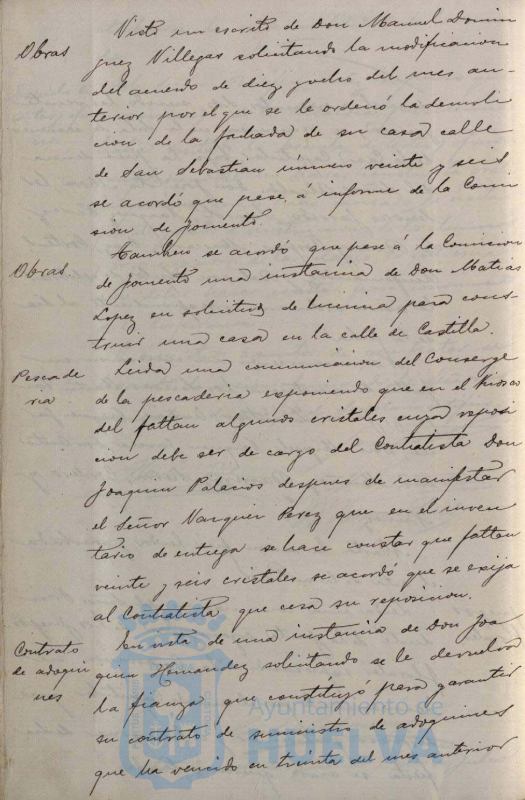 Obras
Visto un escrito de Don Manuel Domin
guez Villegas solicitando la modificacion
del acuerdo de diez y ocho del mes an-
terior por el que se le ordenó la demoli
cion de la fachada de su casa calle
de San Sebastian número veinte y seis
se acordó que pase á informe de la Comi
sion de fomento.
Obras
Tambien se acordó que pase á la Comision
de fomento una instancia de Don Matias
Lopez en solicitud de licencia para cons-
truir una casa en la calle de Castilla.
Pescade
ria
Leida una comunicacion del Conserge
de la pescaderia exponiendo que en el Kiosco
del faltan algunos cristales cuya reposi
cion debe ser de cargo del Contratista Don
Joaquin Palacios despues de manifestar
el Señor Vazquez Perez que en el inven
tario de entrega se hace constar que faltan
veinte y seis cristales se acordó que se exija
al Contratista que su reposicion.
Contrato
de adoqui
nes
En vista de una instancia de Don Joa
quin Hernandez solicitando se le devuelva
la fianza que constituyó para garantir
su contrato de suministro de adoquines
que ha vencido en treinta del mes anterior
Ayuntamiento de
HUELVA